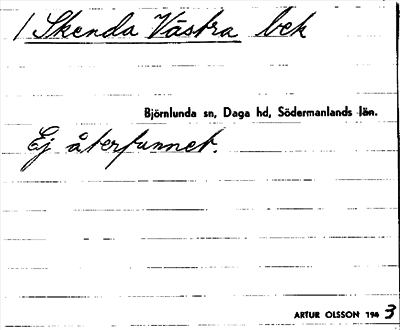 / Skenda Västra bek
Björnlunda sn, Daga hd, Södermanlands län.
Ej återfunnet.
ARTUR OLSSON 1943